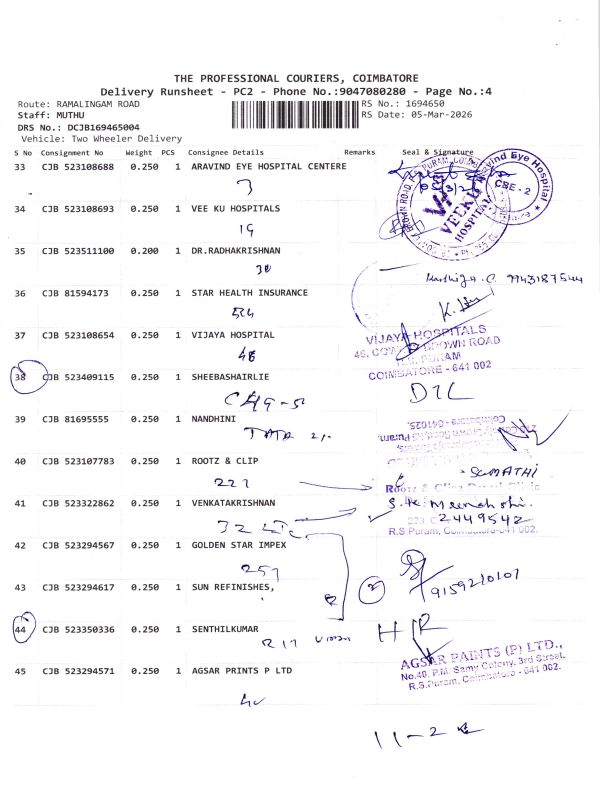 THE PROFESSIONAL COURIERS, COIMBATORE
Delivery Runsheet - PC2 - Phone No.:9047080280 - Page No.:4
Route: RAMALINGAM ROAD
RS No.: 1694650
Staff: MUTHU
RS Date: 05-Mar-2026
DRS No.: DCJB169465004
Vehicle: Two Wheeler Delivery
S No Consignment No Weight PCS Consignee Details Remarks Seal & Signature
33 CJB 523108688 0.250 1 ARAVIND EYE HOSPITAL CENTERE
3
Aravind Eye Hospital
CBE - 2
34 CJB 523108693 0.250 1 VEE KU HOSPITALS
19
VEEKU
HOSPITAL
35 CJB 523511100 0.200 1 DR.RADHAKRISHNAN
9943187544
36 CJB 81594173 0.250 1 STAR HEALTH INSURANCE
37 CJB 523108654 0.250 1 VIJAYA HOSPITAL
48
VIJAYA HOSPITALS
BROWN ROAD
R.S. PURAM
COIMBATORE - 641 002
38 CJB 523409115 0.250 1 SHEEBASHAIRLIE
39 CJB 81695555 0.250 1 NANDHINI
40 CJB 523107783 0.250 1 ROOTZ & CLIP
SUMATHI
41 CJB 523322862 0.250 1 VENKATAKRISHNAN
2449542
R.S.Puram, Coimbatore-641 002.
42 CJB 523294567 0.250 1 GOLDEN STAR IMPEX
257
43 CJB 523294617 0.250 1 SUN REFINISHES,
2
9159210107
44 CJB 523350336 0.250 1 SENTHILKUMAR
45 CJB 523294571 0.250 1 AGSAR PRINTS P LTD
AGSAR PAINTS (P) LTD.,
No.40, P.M. Samy Colony, 3rd Street,
R.S.Puram, Coimbatore - 641 002.